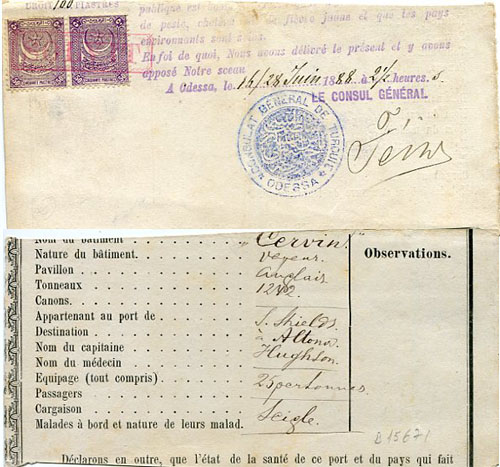 100
PIASTRES
publique est
de peste, choléra de fièvre jaune et que les pays
environnants sont
En foi de quoi, Nous avons délivré le présent et y avons
apposé Notre sceau
A Odessa, le 16/28 Juin 1888 à 2½ heures. s
LE CONSUL GÉNÉRAL
CONSULAT GENERAL DE TURQUIE
ODESSA
Nom du bâtiment "Cervin"
Nature du bâtiment. vapeur
Pavillon anglais
Tonneaux 1242
Canons.
Appartenant au port de S. Shields
Destination à Altona
Nom du capitaine Hughson
Nom du médecin
Equipage (tout compris) 25 personnes
Passagers
Cargaison Seigle.
Malades à bord et nature de leurs malad.
Observations.
B 15671
Déclarons en outre, que l'état de la santé de ce port et du pays qui fait